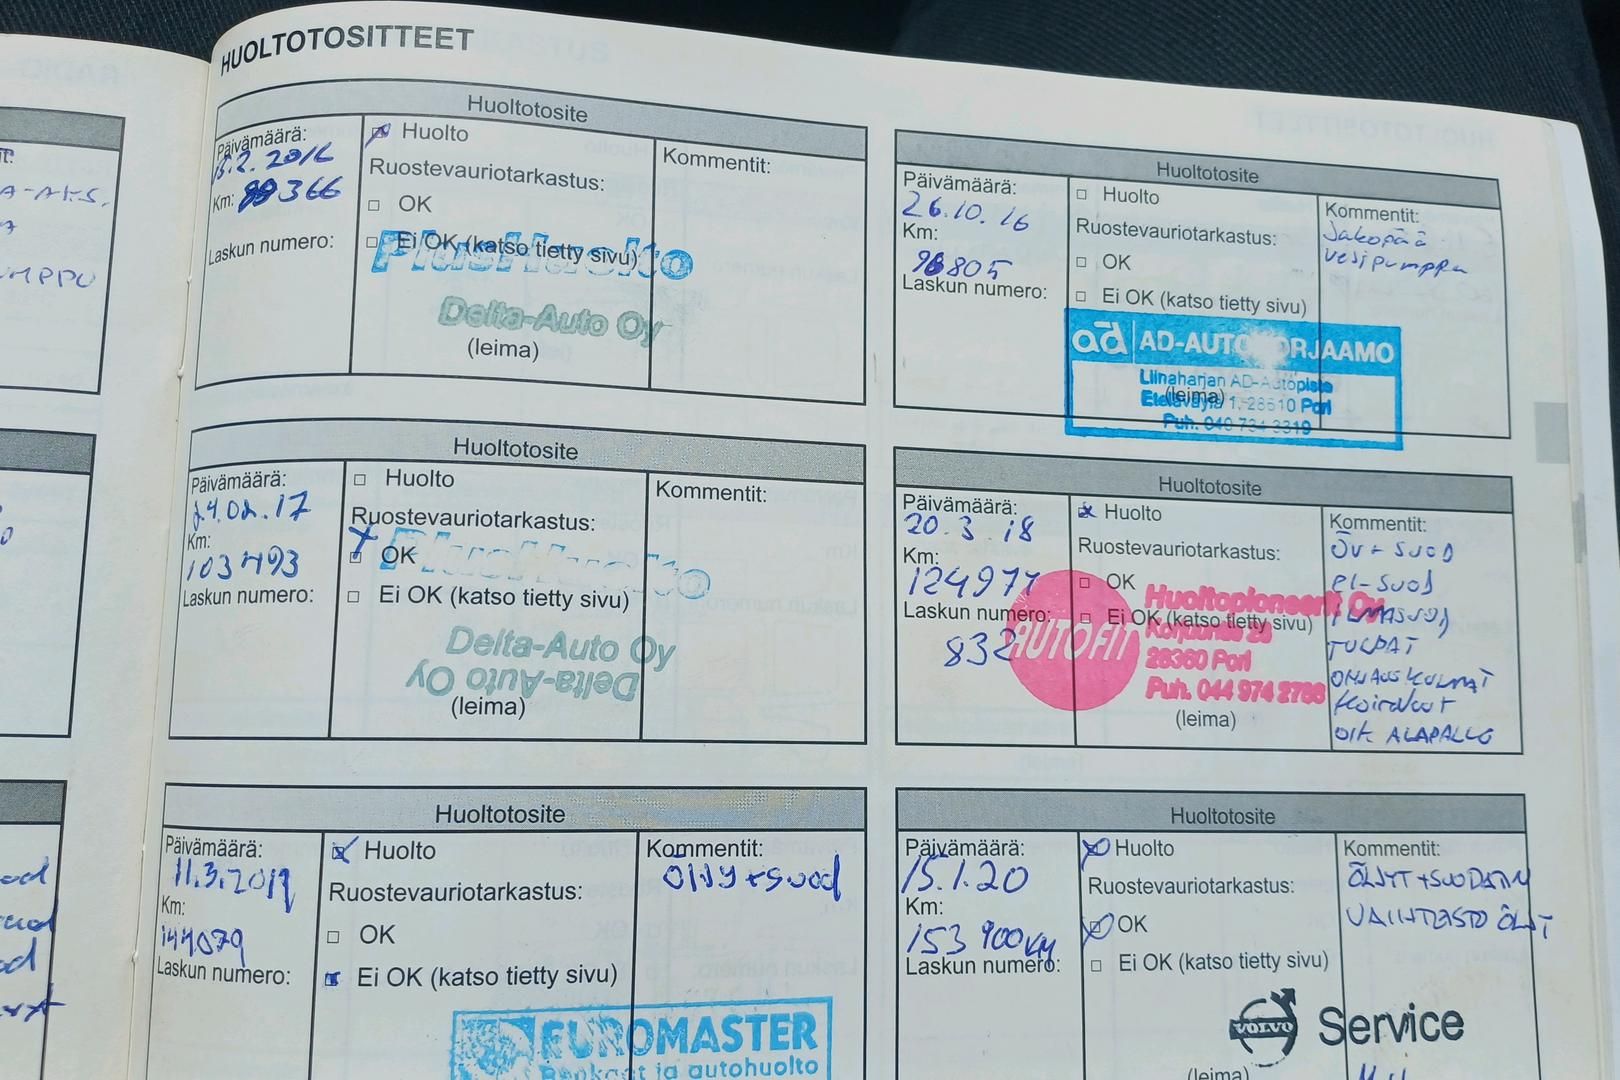 HUOLTOTOSITTEET
Huoltotosite
Päivämäärä:
15.2.2016
Km: 89366
Laskun numero:
Huolto
Ruostevauriotarkastus:
OK
Ei OK (katso tietty sivu)
PlusHuolto
Delta-Auto Oy
(leima)
Kommentit:
Huoltotosite
Päivämäärä:
26.10.16
Km:
98805
Laskun numero:
Huolto
Ruostevauriotarkastus:
OK
Ei OK (katso tietty sivu)
ad AD-AUTOKORJAAMO
Liinaharjan AD-Autopiste
(leima)
Eteläväylä 1, 28610 Pori
Puh. 040 734 3319
Kommentit:
Jakopää
vesipumppu
Huoltotosite
Päivämäärä:
24.02.17
Km:
103493
Laskun numero:
Huolto
Ruostevauriotarkastus:
OK
PlusHuolto
Ei OK (katso tietty sivu)
Delta-Auto Oy
Delta-Auto Oy
(leima)
Kommentit:
Huoltotosite
Päivämäärä:
20.3.18
Km:
124977
Laskun numero:
832
Huolto
Ruostevauriotarkastus:
OK
Ei OK (katso tietty sivu)
AUTOFIT
Huoltopioneerit Oy
28360 Pori
Puh. 044 974 2786
(leima)
Kommentit:
ÖV+SUOD
PI-SUOD
ILMASUOD
TULPAT
OHJAUSKULMAT
Koiranluut
OIK ALAPALLO
Huoltotosite
Päivämäärä:
11.3.2019
Km:
144079
Laskun numero:
Huolto
Ruostevauriotarkastus:
OK
Ei OK (katso tietty sivu)
EUROMASTER
Renkaat ja autohuolto
Kommentit:
Öljy+suod
Huoltotosite
Päivämäärä:
15.1.20
Km:
153 900km
Laskun numero:
Huolto
Ruostevauriotarkastus:
OK
Ei OK (katso tietty sivu)
VOLVO Service
(leima)
Kommentit:
ÖLJYT+SUODATIN
VAIHTEISTO ÖLJYT